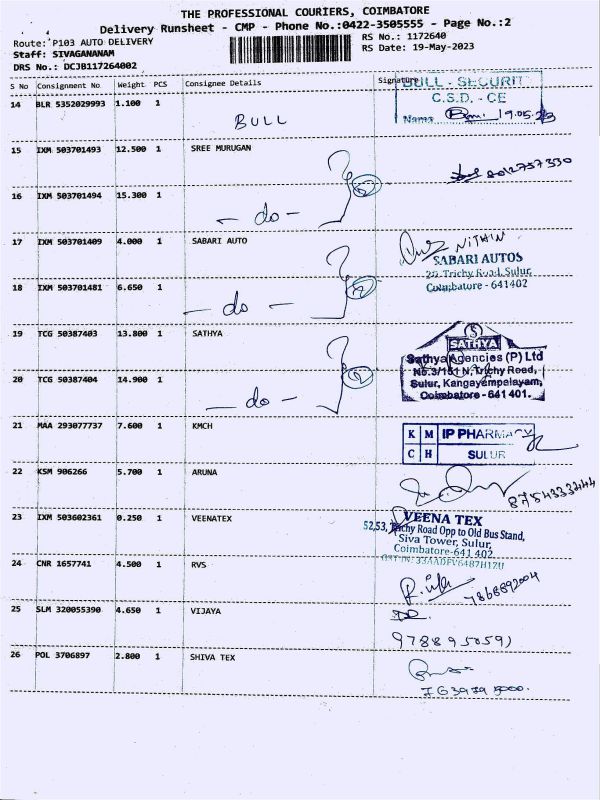 THE PROFESSIONAL COURIERS, COIMBATORE
Delivery Runsheet - CMP - Phone No.:0422-3505555 - Page No.:2
Route: P103 AUTO DELIVERY
RS No.: 1172640
Staff: SIVAGANANAM
RS Date: 19-May-2023
DRS No.: DCJB117264002
S No Consignment No Weight PCS Consignee Details Signature
BULL - SECURITY
C.S.D. - CE
Name 19.05.23
14 BLR 5352029993 1.100 1 BULL
15 IXM 503701493 12.500 1 SREE MURUGAN
16 IXM 503701494 15.300 1 - do -
17 IXM 503701409 4.000 1 SABARI AUTO
NITHIN
SABARI AUTOS
20, Trichy Road, Sulur,
Coimbatore - 641402
18 IXM 503701481 6.650 1 - do -
19 TCG 50387403 13.800 1 SATHYA
SATHYA
Sathya Agencies (P) Ltd
No.3/181 N, Trichy Road,
Sulur, Kangayampalayam,
Coimbatore - 641 401.
20 TCG 50387404 14.900 1 - do -
21 MAA 293077737 7.600 1 KMCH
K M IP PHARMACY
C H SULUR
22 KSM 906266 5.700 1 ARUNA
8754333444
23 IXM 503602361 0.250 1 VEENATEX
VEENA TEX
52,53, Trichy Road Opp to Old Bus Stand,
Siva Tower, Sulur,
Coimbatore-641 402
24 CNR 1657741 4.500 1 RVS
7868892004
25 SLM 320055390 4.650 1 VIJAYA
9788950591
26 POL 3706897 2.800 1 SHIVA TEX